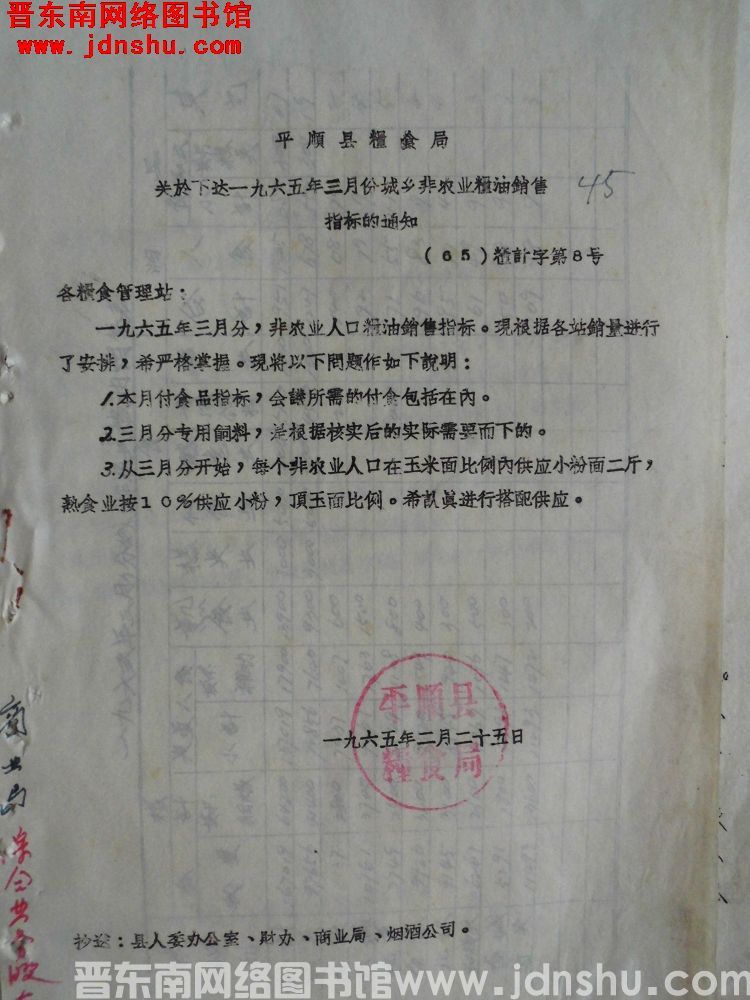 晋东南网络图书馆
www.jdnshu.com
平順县糧食局
关於下达一九六五年三月份城乡非农业糧油銷售
45
指标的通知
(65)糧計字第8号
各糧食管理站：
一九六五年三月分，非农业人口糧油銷售指标。現根据各站銷量进行
了安排，希严格掌握。現将以下問題作如下說明：
1.本月付食品指标，会議所需的付食包括在內。
2.三月分专用飼料，是根据核实后的实际需要而下的。
3.从三月分开始，每个非农业人口在玉米面比例內供应小粉面二斤，
熟食业按10%供应小粉，頂玉面比例。希認眞进行搭配供应。
平順县
一九六五年二月二十五日
糧食局
商业局
抄送：县人委办公室、財办、商业局、烟酒公司。
晋东南网络图书馆www.jdnshu.com